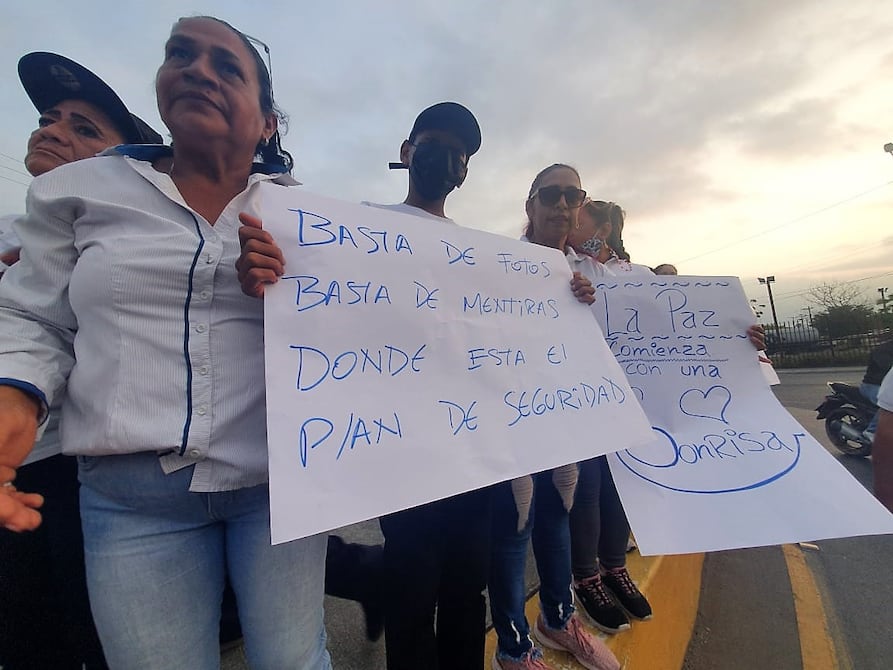 BASTA DE FOTOS
BASTA DE MENTIRAS
DONDE ESTA El
PlAN DE SEGURIDAD
La Paz
Comienza
con una
Sonrisa